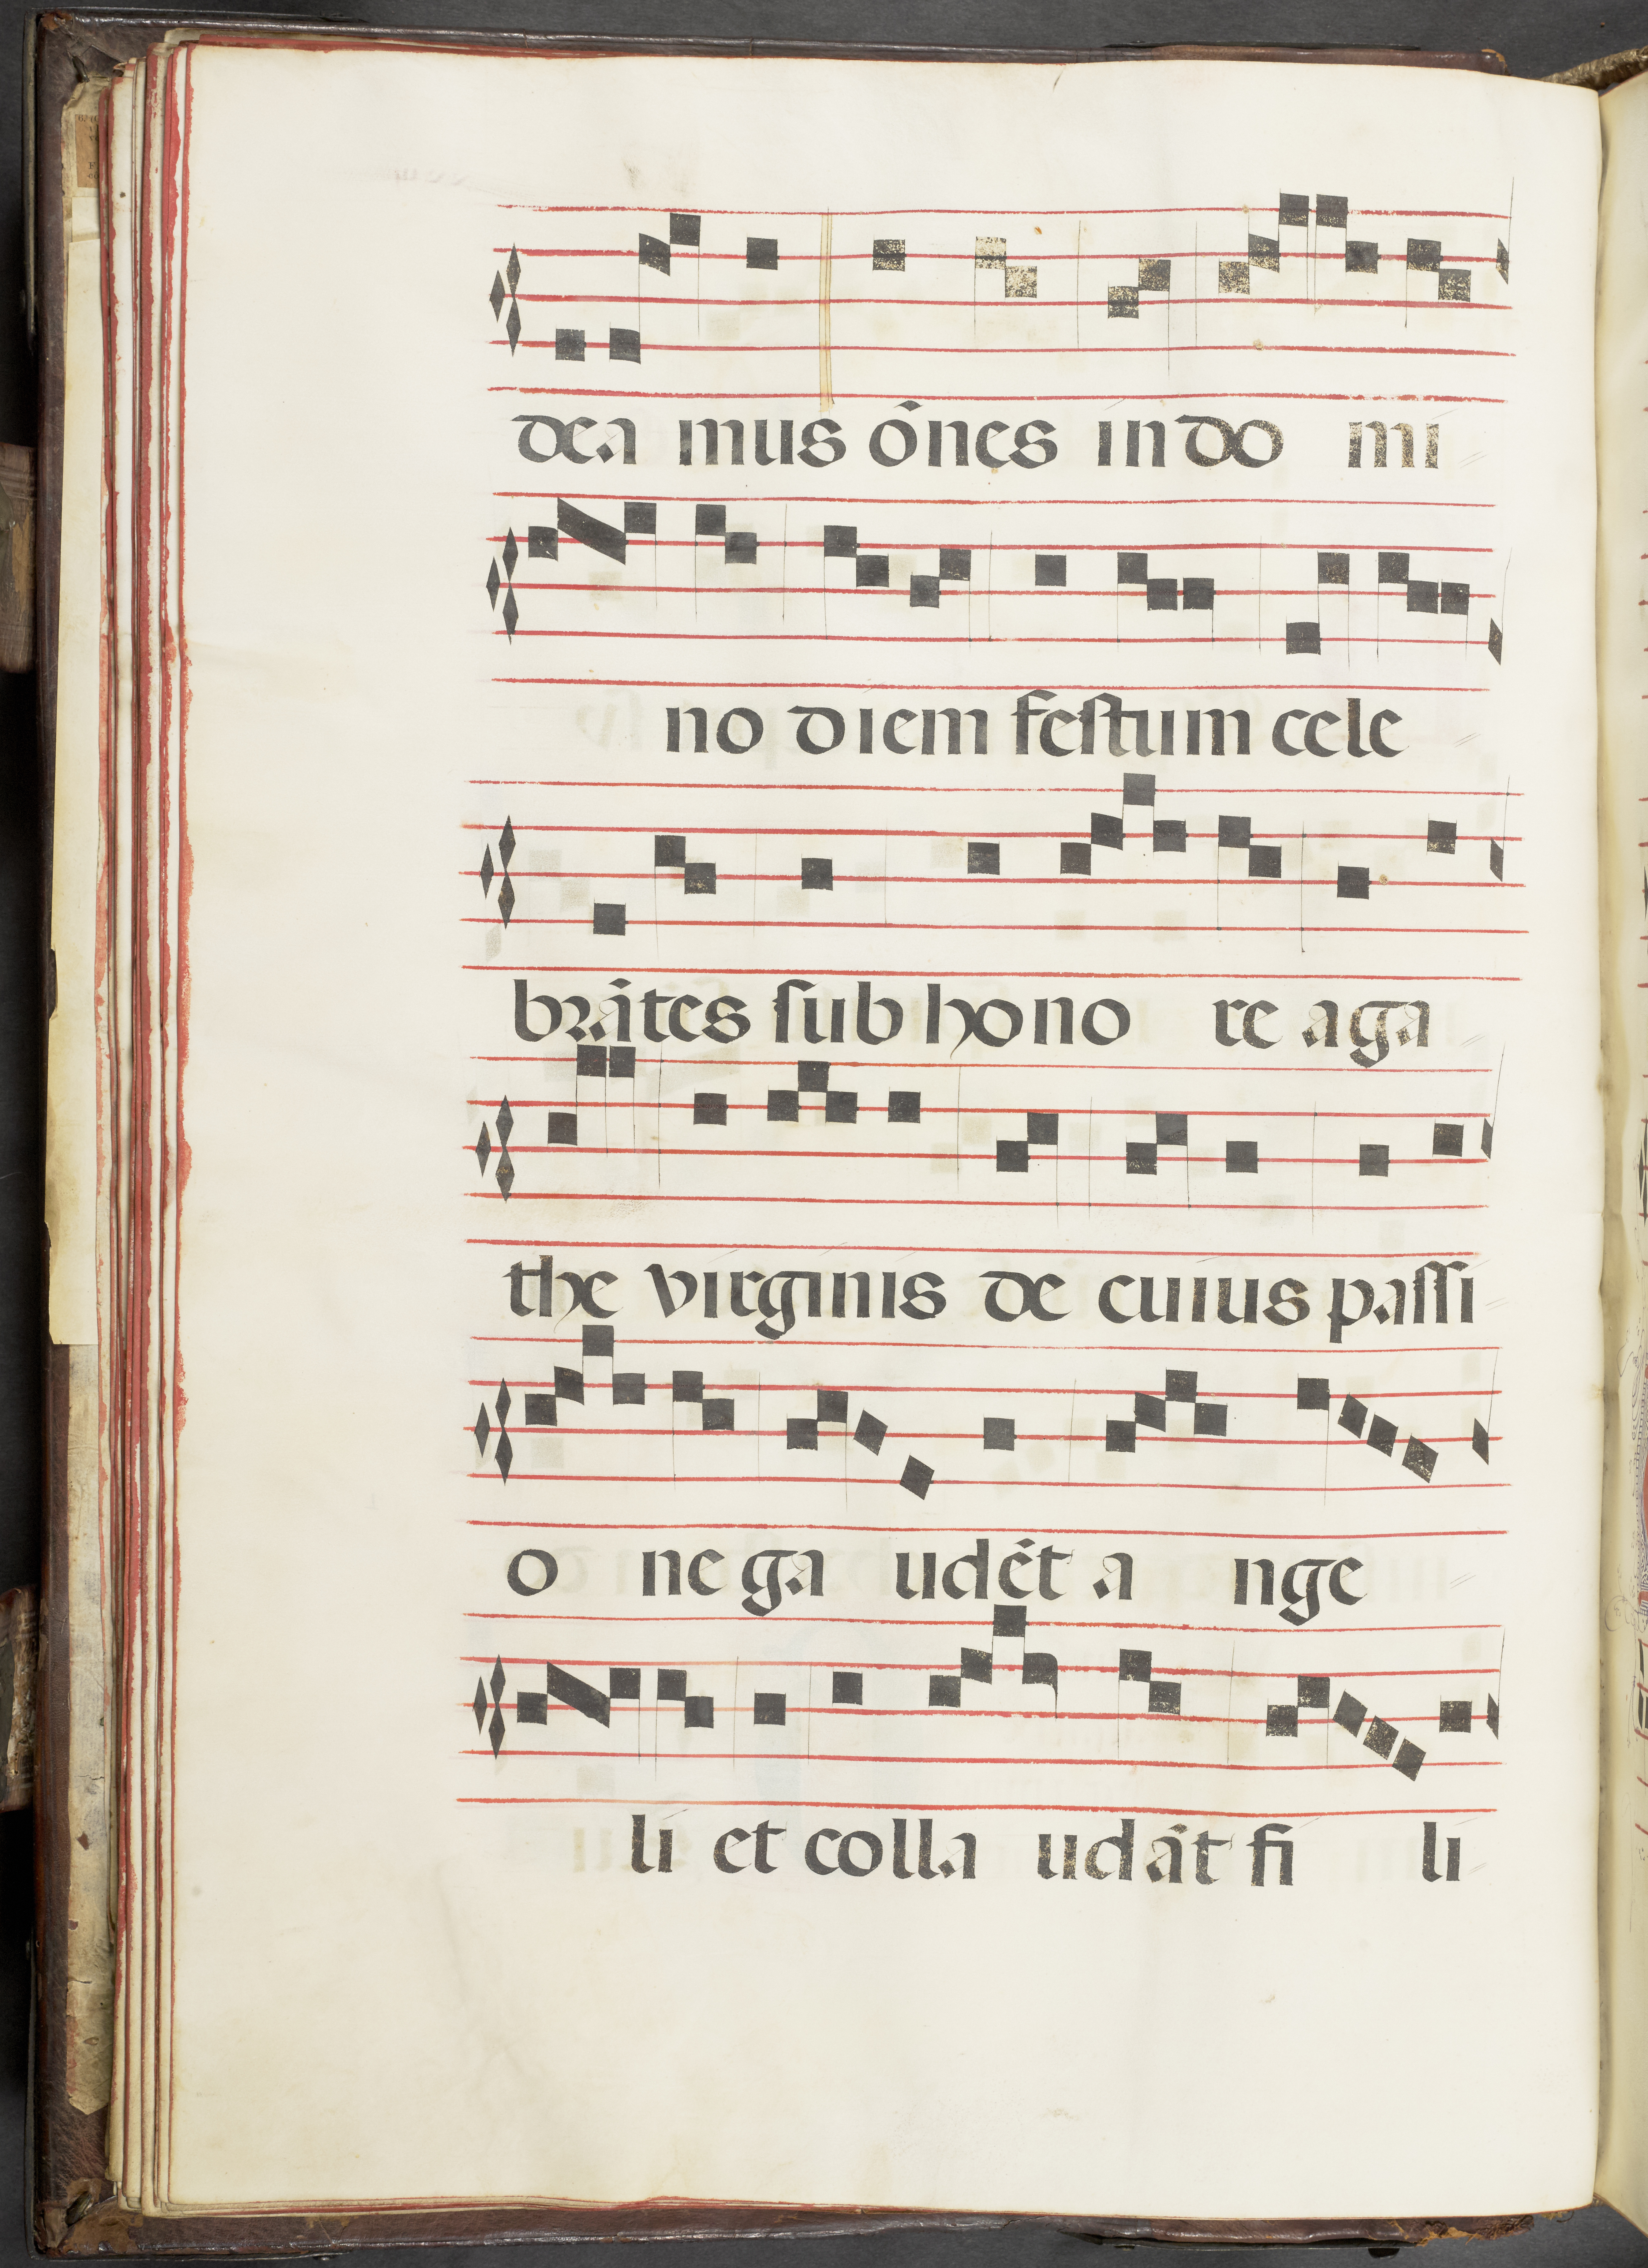 dea mus ōnes in do mi
no diem festum cele
brātes sub hono re aga
the virginis de cuius passi
o ne ga udēt a nge
li et colla udāt fi li